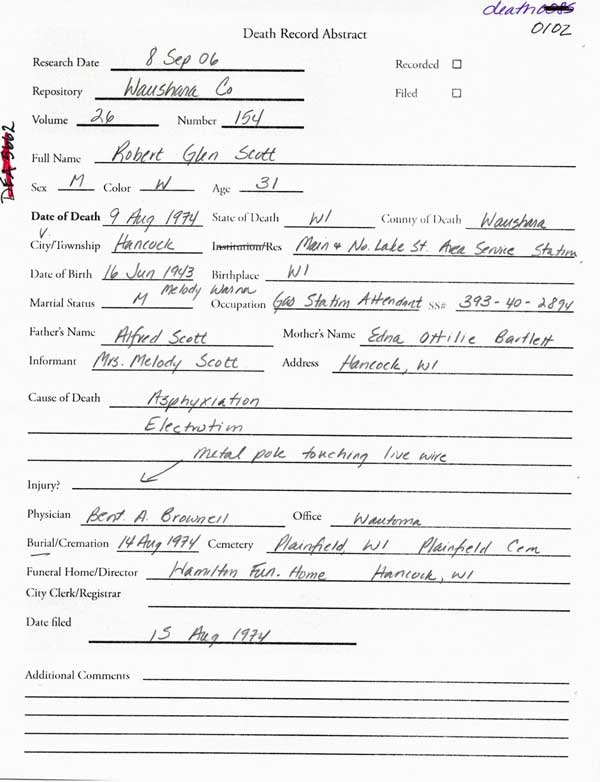 death
0102
Death Record Abstract
Research Date 8 Sep 06 Recorded ☐
Repository Waushara Co Filed ☐
Volume 26 Number 154
Full Name Robert Glen Scott
Sex M Color W Age 31
Date of Death 9 Aug 1974 State of Death WI County of Death Waushara
City/Township Hancock Institution/Res Main & No. Lake St. Area Service Station
Date of Birth 16 Jun 1943 Birthplace WI
Melody
Martial Status M Occupation Gas Station Attendant SS# 393-40-2894
Father's Name Alfred Scott Mother's Name Edna Ottilie Bartlett
Informant Mrs. Melody Scott Address Hancock, WI
Cause of Death Asphyxiation
Electrotion
metal pole touching live wire
Injury?
Physician Bent. A. Brownell Office Wautoma
Burial/Cremation 14 Aug 1974 Cemetery Plainfield, WI Plainfield Cem
Funeral Home/Director Hamilton Fun. Home Hancock, WI
City Clerk/Registrar
Date filed
15 Aug 1974
Additional Comments